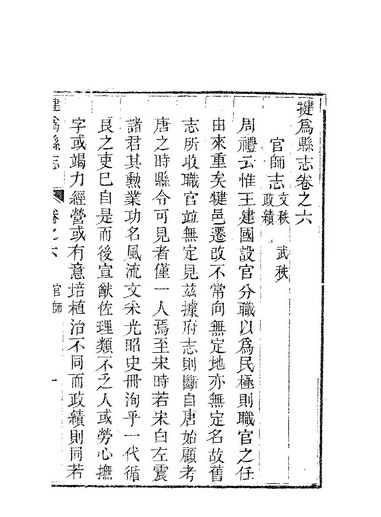 犍爲縣志卷之六
官師志 文秩 武秩 政績
周禮云惟王建國設官分職以爲民極則職官之任
由來重矣犍邑遷改不常向無定地亦無定名故舊
志所收職官竝無定見玆據府志則斷自唐始顧考
唐之時縣令可見者僅一人焉至宋時若宋白左震
諸君其勲業功名風流文采光昭史冊洵乎一代循
良之吏巳自是而後宣猷佐理類不乏人或勞心撫
字或竭力經營或有意培植治不同而政績則同若
犍爲縣志 卷之六 官師 一